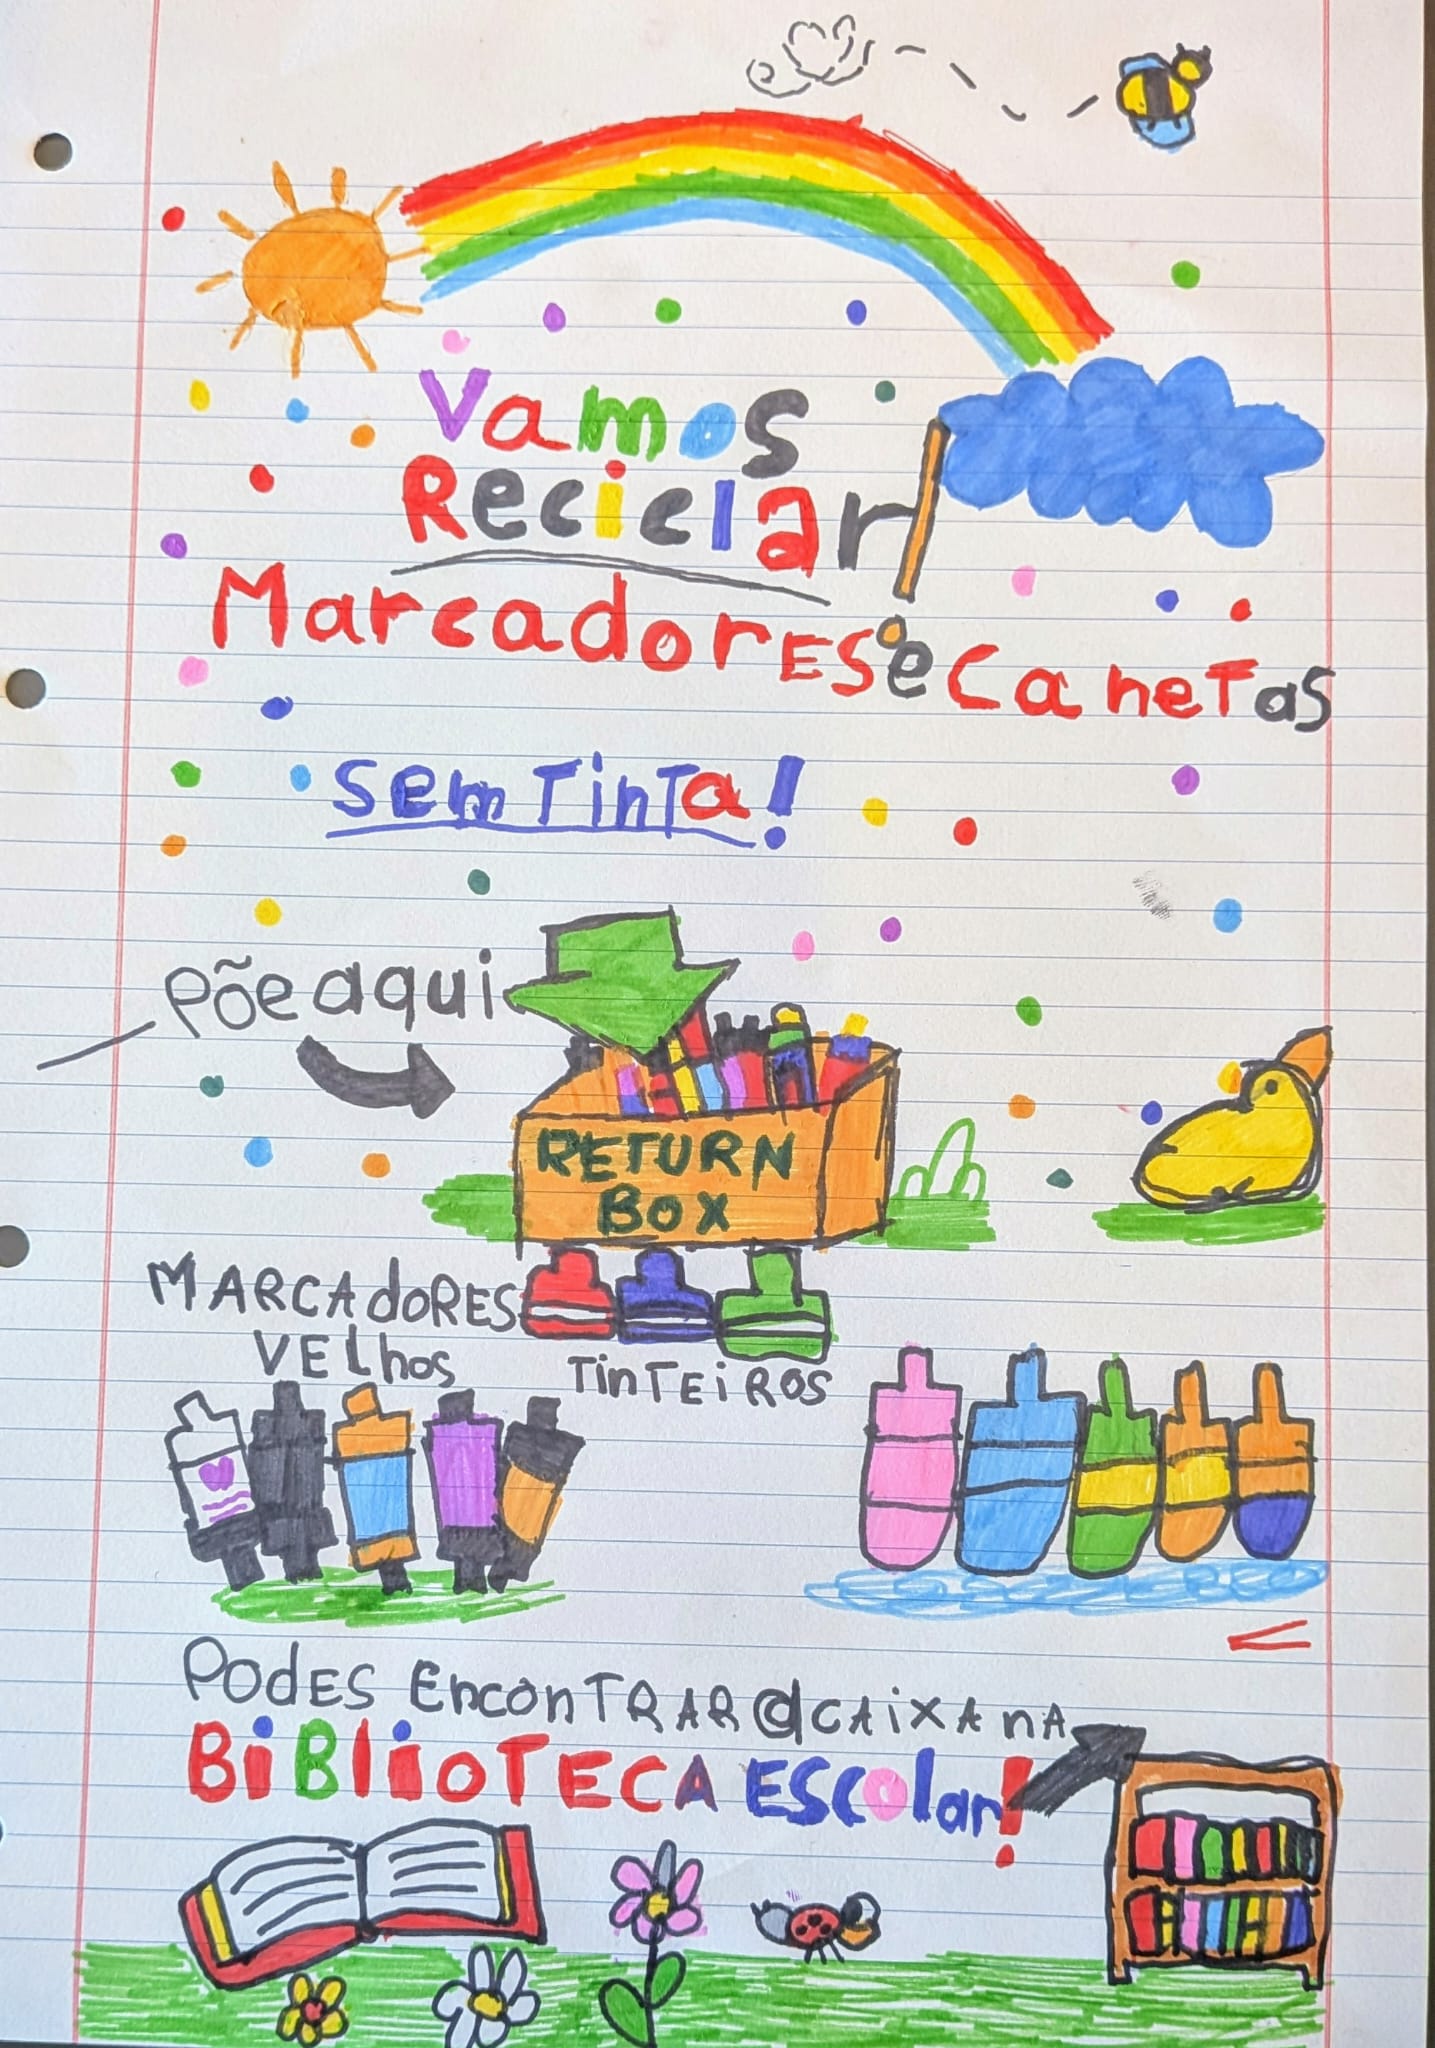 Vamos
Reciclar
MarcadorES e CaneTas
Sem TinTa!
Põe aqui
RETURN
BOX
MARCAdoRES
VElhos
TinTEiROS
PodES EnconTRAR a CAiXA nA
BiBlioTECA EScolar!